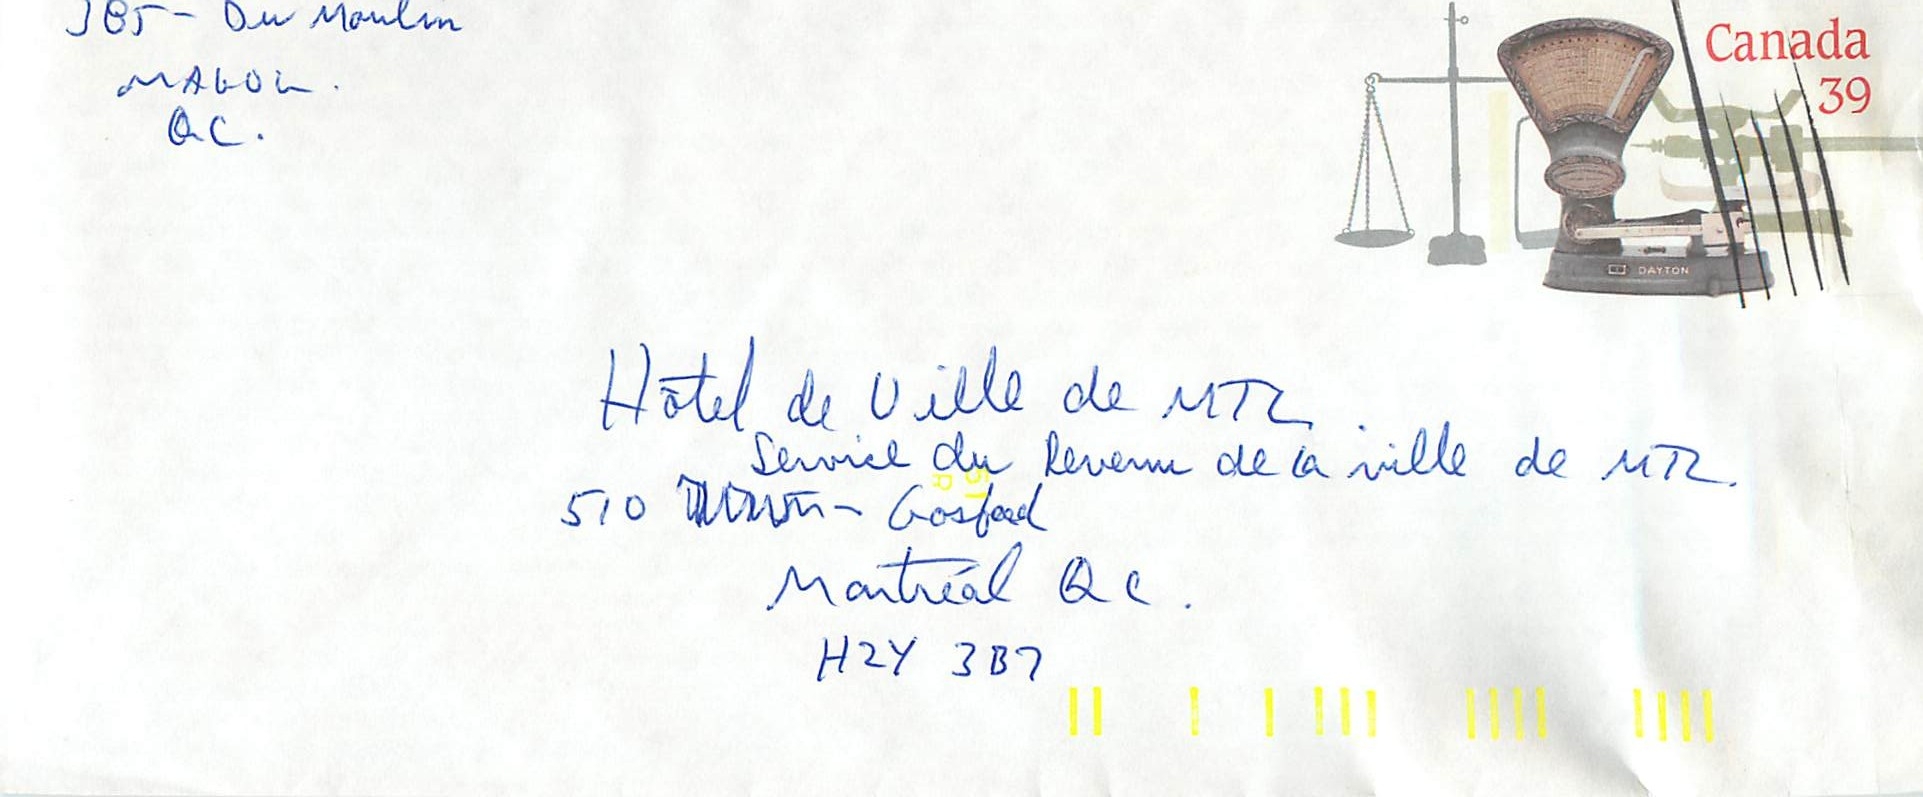 385 - Du Moulin
MAGOG.
QC.
Canada
39
DAYTON
Hôtel de Ville de MTL
Service du Revenu de la ville de MTL.
510 - Gosford
Montréal Qc.
H2Y 3B7